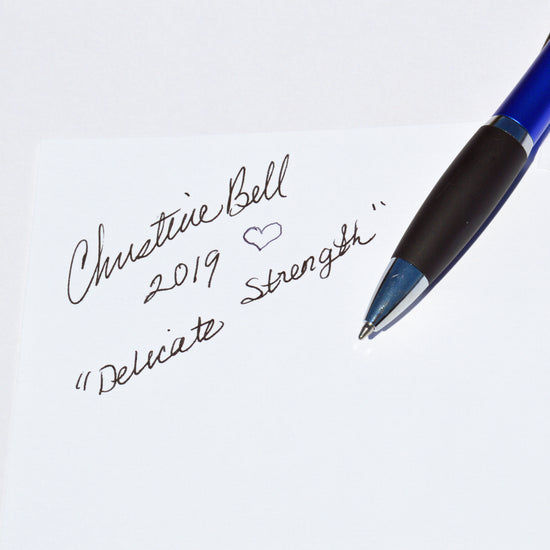 Christine Bell
2019 ♡
"Delicate Strength"